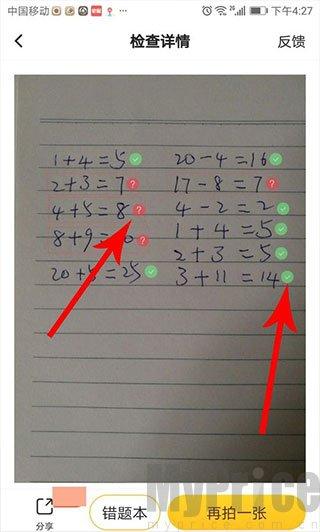 中国移动 下午4:27
检查详情 反馈
1+4=5 20-4=16
2+3=7 17-8=7
4+5=8 4-2=2
8+9= 1+4=5
2+3=5
20+5=25 3+11=14
MyPrice
分享 错题本 再拍一张